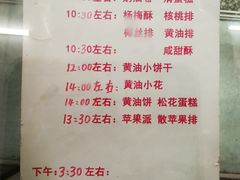 10:30左右: 杨梅酥 核桃排
椰丝排 黄油排
10:30左右: 咸甜酥
12:00左右: 黄油小饼干
14:00左右: 黄油小花
14:00左右: 黄油饼 松花蛋糕
13:30左右: 苹果派 散苹果排
下午:3:30左右: